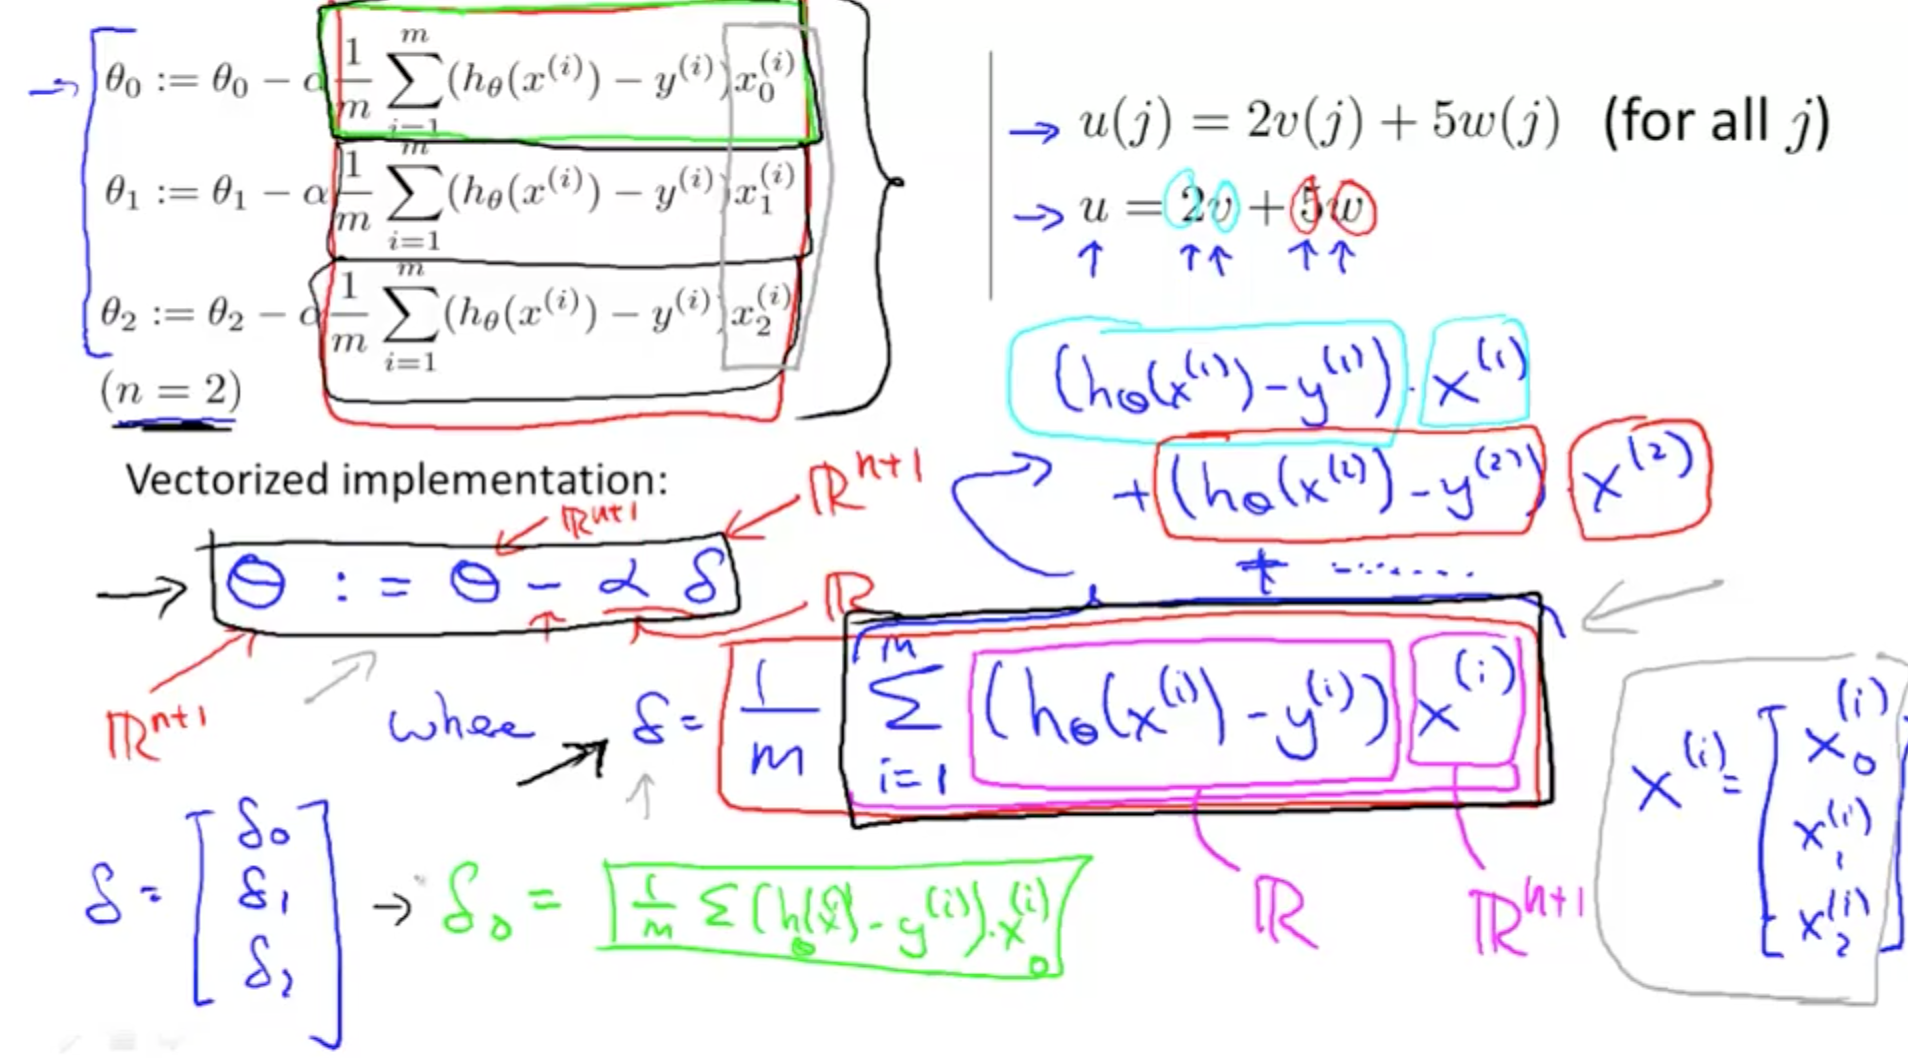 θ₀ := θ₀ − α 1/m ∑_{i=1}^{m} (h_θ(x^(i)) − y^(i)) x₀^(i)
θ₁ := θ₁ − α 1/m ∑_{i=1}^{m} (h_θ(x^(i)) − y^(i)) x₁^(i)
θ₂ := θ₂ − α 1/m ∑_{i=1}^{m} (h_θ(x^(i)) − y^(i)) x₂^(i)
(n = 2)
→ u(j) = 2v(j) + 5w(j) (for all j)
→ u = 2v + 5w
(h_θ(x^(1)) − y^(1)) · x^(1)
+ (h_θ(x^(2)) − y^(2)) x^(2)
+ ........
Vectorized implementation:
ℝ^{n+1}
ℝ^{n+1}
→ θ := θ − α δ
ℝ
ℝ^{n+1}
where → δ = 1/m ∑_{i=1}^{m} (h_θ(x^(i)) − y^(i)) x^(i)
ℝ
ℝ^{n+1}
x^(i) = [x₀^(i)
x₁^(i)
x₂^(i)]
δ = [δ₀
δ₁
δ₂]
→ δ₀ = 1/m Σ (h_θ(x^(i)) − y^(i)) · x₀^(i)